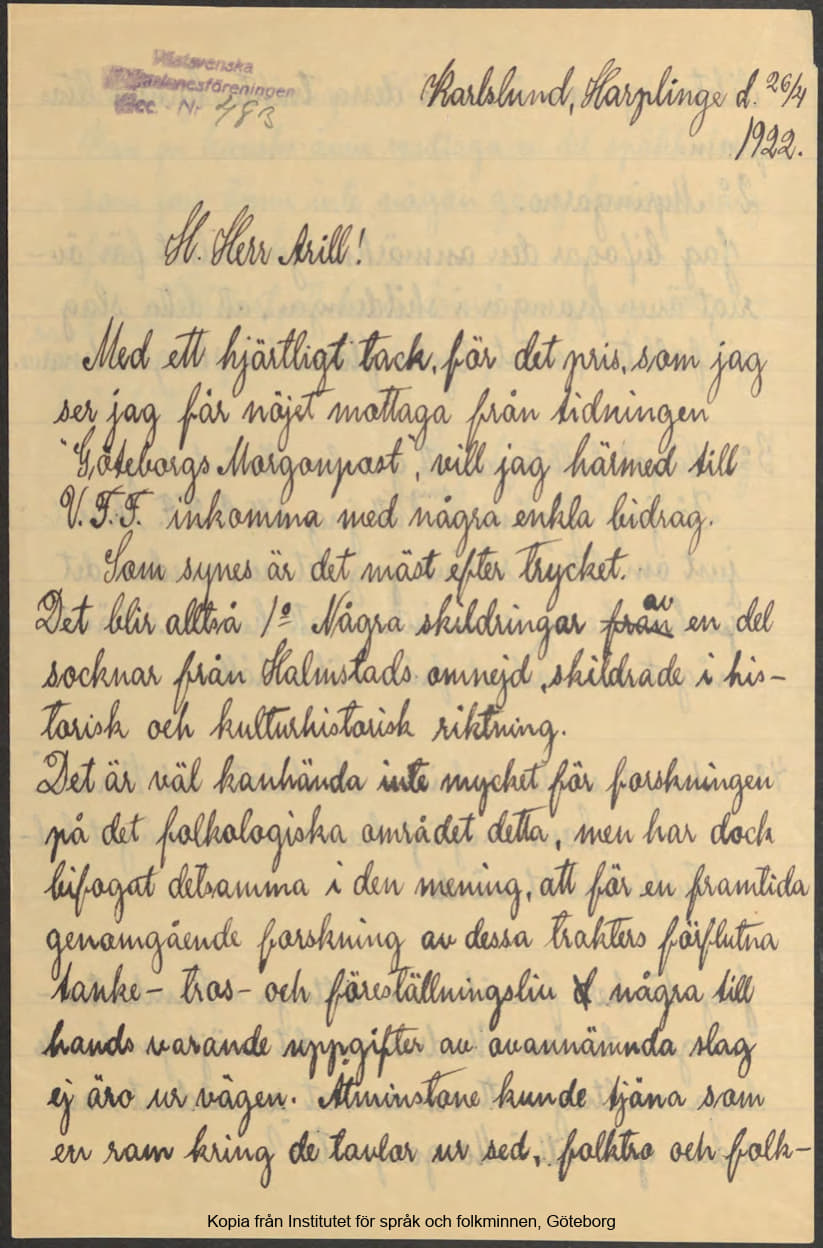 Västsvenska
Folkminnesföreningen
Acc. Nr 483
Karlslund, Harplinge d. 26/4
1922.
H. Herr Arill!
Med ett hjärtligt tack, för det pris, som jag
ser jag får nöjet mottaga från tidningen
"Göteborgs Morgonpost", vill jag härmed till
V.F.F. inkomma med några enkla bidrag.
Som synes är det mäst efter trycket.
Det blir alltså 1º Några skildringar från av en del
socknar från Halmstads omnejd, skildrade i his-
torisk och kulturhistorisk riktning.
Det är väl kanhända inte mycket för forskningen
på det folkologiska området detta, men har dock
bifogat detsamma i den mening, att för en framtida
genomgående forskning av dessa trakters förflutna
tanke- tros- och föreställningsliv några till
hands varande uppgifter av ovannämnda slag
ej äro ur vägen. Åtminstone kunde tjäna som
en ram kring de tavlor ur sed, folktro och folk-
Kopia från Institutet för språk och folkminnen, Göteborg